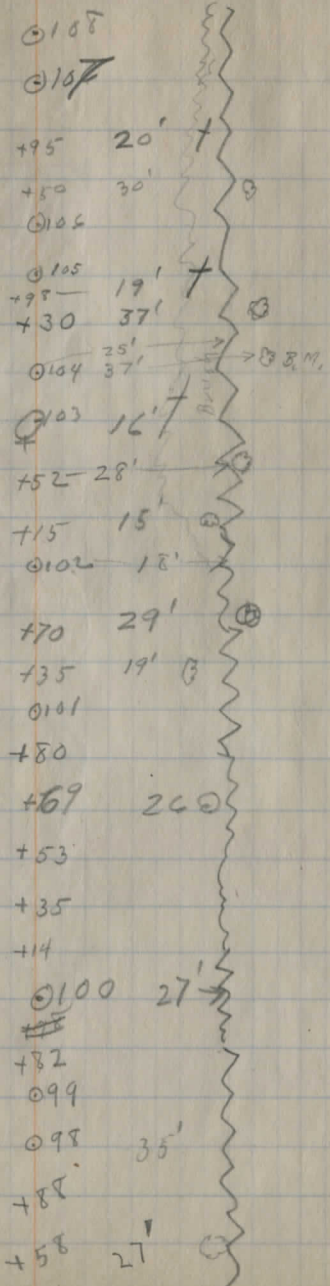 ⊙108
⊙107
+95 20'
+50 30'
⊙106
⊙105
+98 19'
+30 37'
25'
⊙104 37' B.M.
⊙103 16'
+52 28'
+15 15'
⊙102 18'
+70 29'
+35 19'
⊙101
+80
+69 26
+53
+35
+14
⊙100 27'
+82
⊙99
⊙98 35'
+88
+58 27'